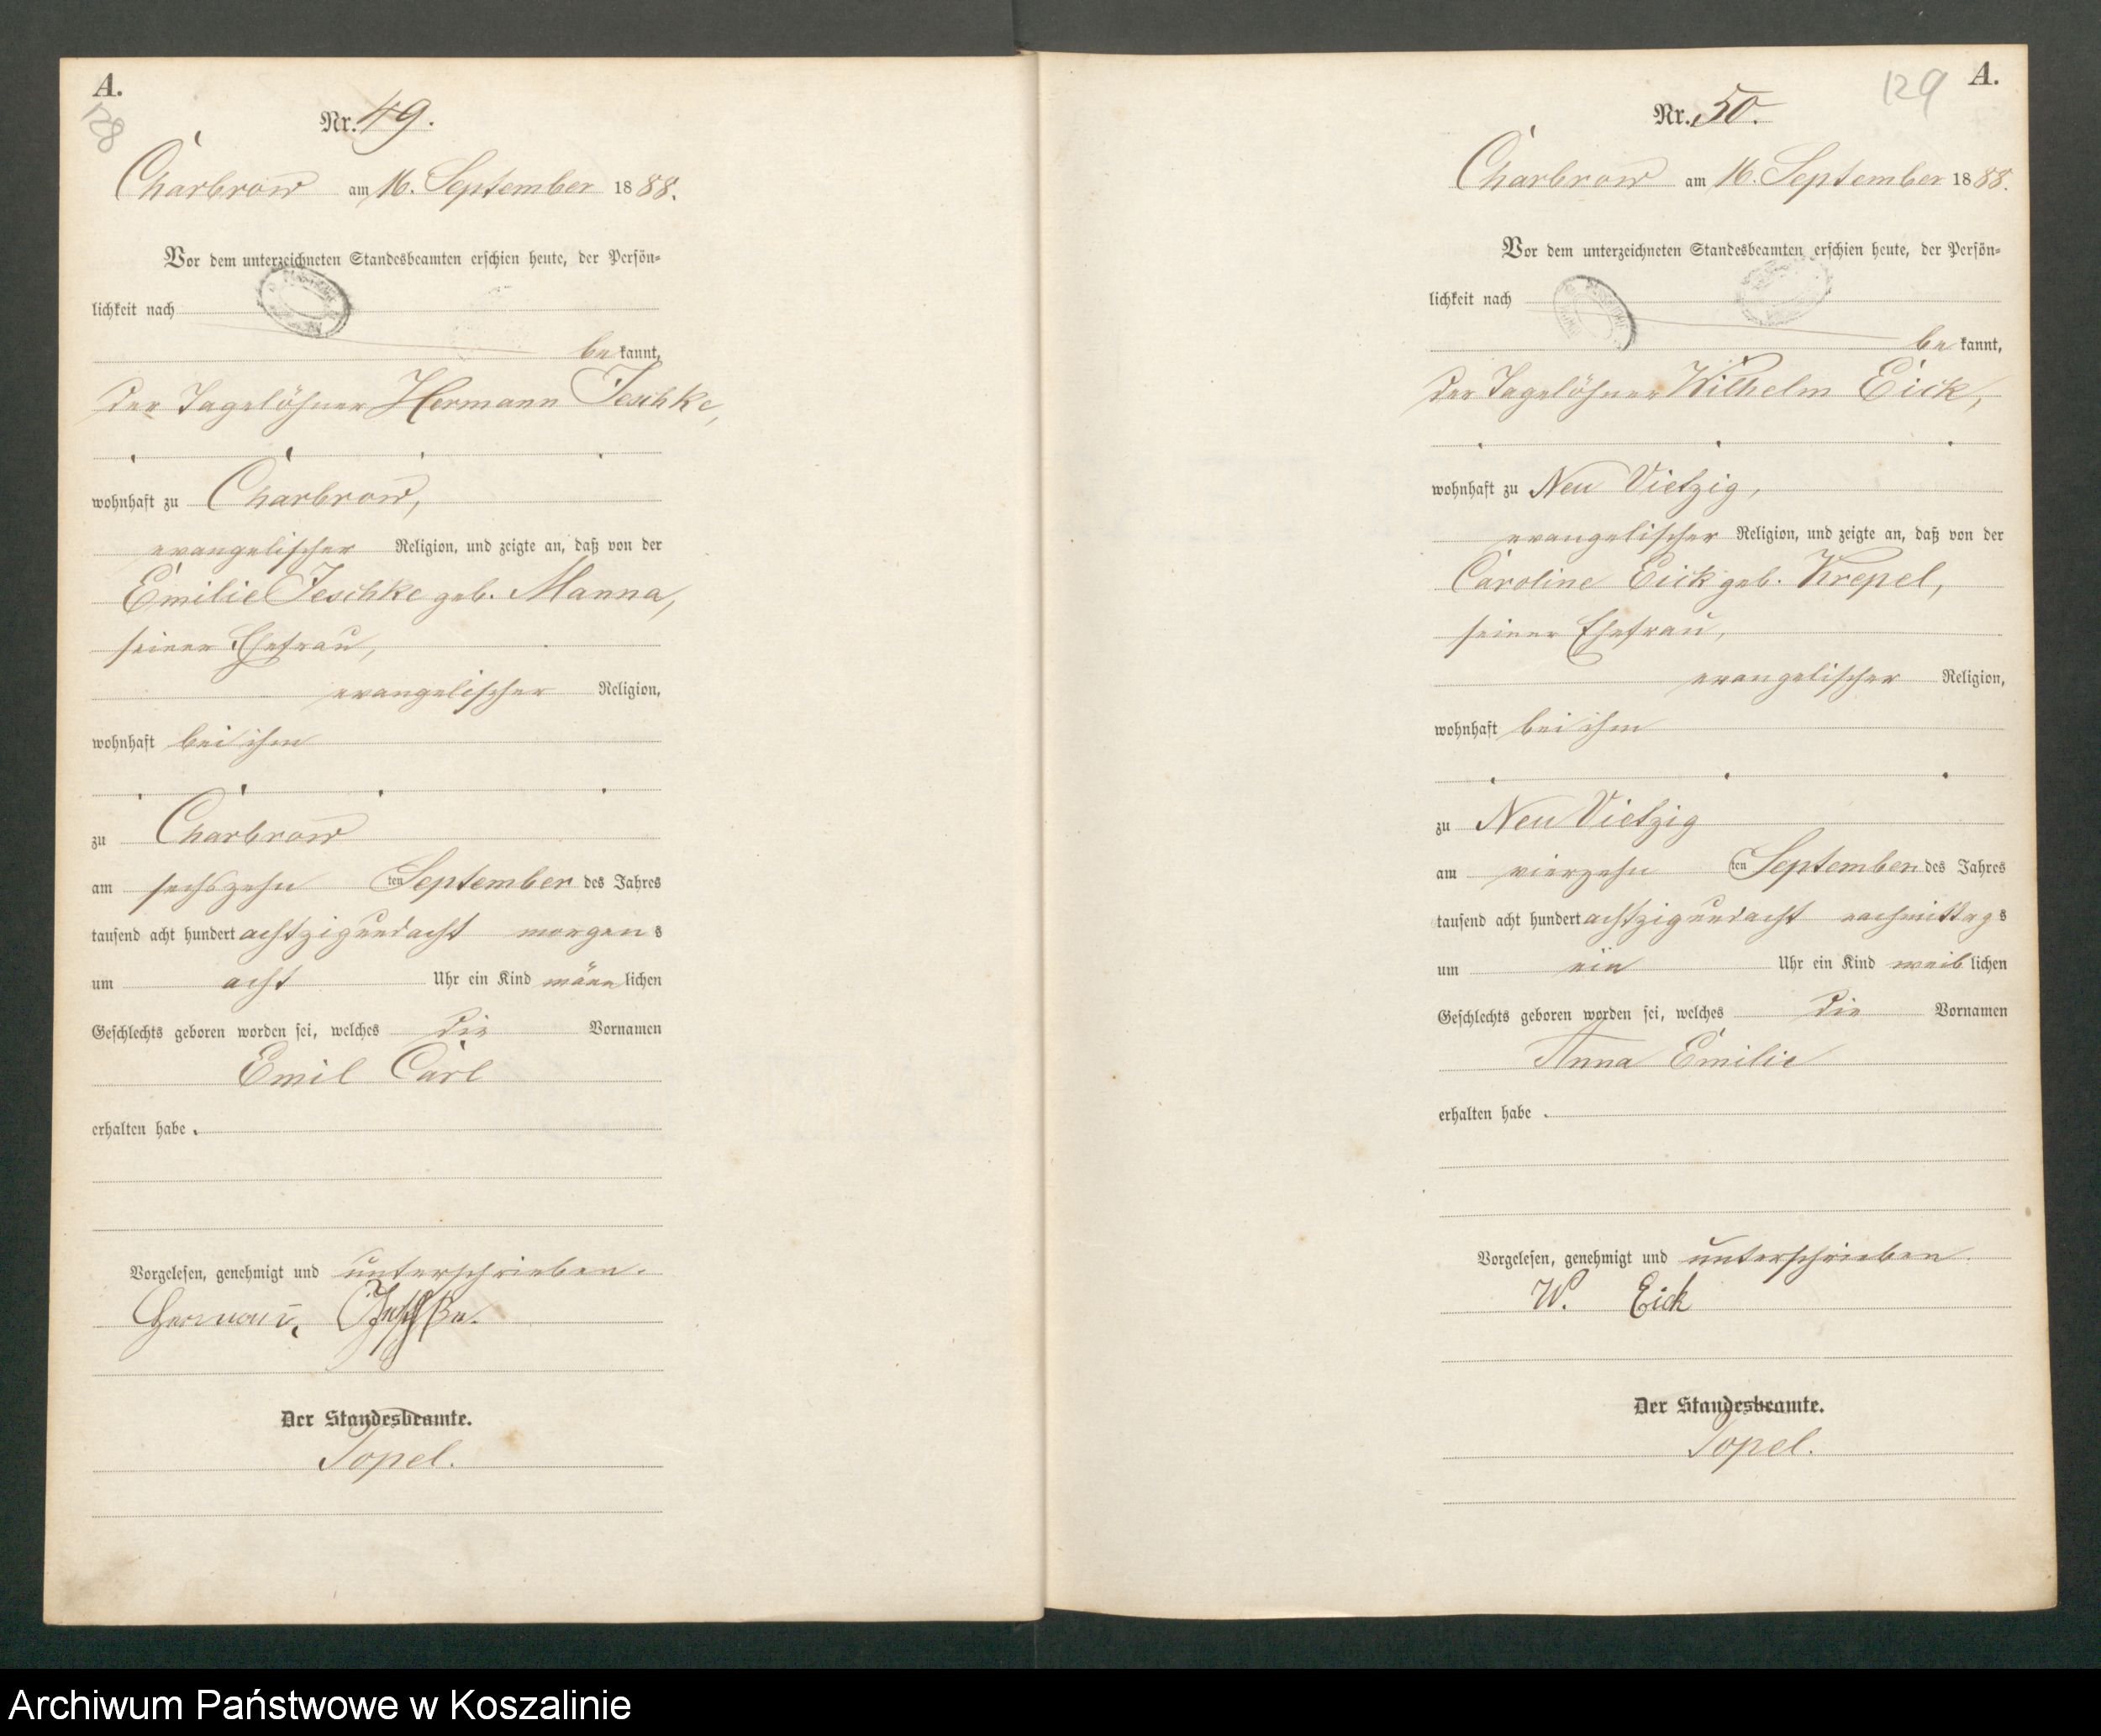 A.
128
Nr. 49.
Charbrow am 16. September 1888.
Vor dem unterzeichneten Standesbeamten erschien heute, der Persön-
lichkeit nach
bekannt,
der Tagelöhner Hermann Jeschke,
wohnhaft zu Charbrow,
evangelischer Religion, und zeigte an, daß von der
Emilie Jeschke geb. Manna,
seiner Ehefrau,
evangelischer Religion,
wohnhaft bei ihm
zu Charbrow
am sechszehn ten September des Jahres
tausend acht hundert achtzig und acht morgens
um acht Uhr ein Kind männlichen
Geschlechts geboren worden sei, welches die Vornamen
Emil Carl
erhalten habe.
Vorgelesen, genehmigt und unterschrieben.
Hermann Jeschke.
Der Standesbeamte.
Topel.
129
A.
Nr. 50.
Charbrow am 16. September 1888.
Vor dem unterzeichneten Standesbeamten erschien heute, der Persön-
lichkeit nach
bekannt,
der Tagelöhner Wilhelm Eick,
wohnhaft zu Neu Vietzig,
evangelischer Religion, und zeigte an, daß von der
Caroline Eick geb. Krepel,
seiner Ehefrau,
evangelischer Religion,
wohnhaft bei ihm
zu Neu Vietzig
am vierzehn ten September des Jahres
tausend acht hundert achtzig und acht nachmittags
um ein Uhr ein Kind weiblichen
Geschlechts geboren worden sei, welches die Vornamen
Anna Emilie
erhalten habe.
Vorgelesen, genehmigt und unterschrieben.
W. Eick
Der Standesbeamte.
Topel.
Archiwum Państwowe w Koszalinie